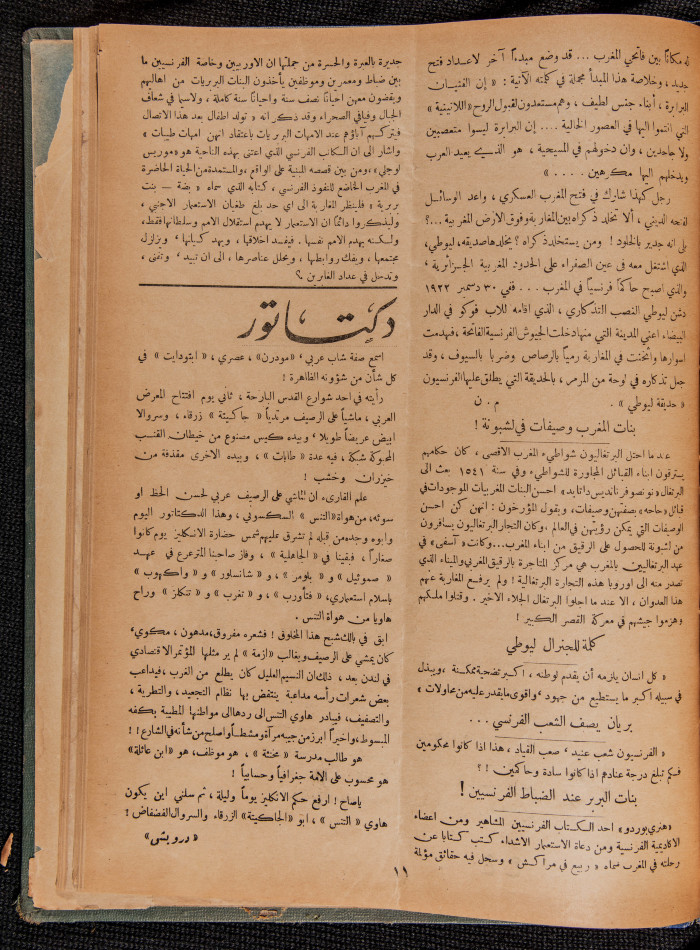 له مكاناً بين فاتحي المغرب ... قد وضع مبدءاً آخر لاعداد فتح
جديد، وخلاصة هذا المبدأ مجملة في كلمته الآتية : « إن الفتيان
البرابرة ، أبناء جنس لطيف ، وهم مستعدون لقبول الروح «اللاتينية»
التي انتموا اليها في العصور الخالية .... إن البرابرة ليسوا متعصبين
ولا جاحدين ، وان دخولهم في المسيحية ، هو الذي يبعيد العرب
ويدخلهم اليها مكرهين .... »
رجل كهذا شارك في فتح المغرب العسكري ، واعد الوسائل
لفتحه الديني ، ألا تخلد ذكراه بين المغاربة وفوق الارض المغربية ...؟
بلى انه جدير بالخلود ! ومن يستخلد ذكراه ؟ يخلدها صديقه ، ليوطي،
الذي اشتغل معه في عين الصفراء على الحدود المغربية الجزائرية ،
والذي اصبح حاكماً فرنسياً في المغرب ... ففي ٣٠ دسمبر ١٩٢٢
دشن ليوطي النصب التذكاري ، الذي اقامه للاب فوكو في الدار
البيضاء اعني المدينة التي منها دخلت الجيوش الفرنسية الفاتحة ، فهدمت
اسوارها وأثخنت في المغاربة رمياً بالرصاص وضربا بالسيوف ، وقد
جعل تذكاره في لوحة من المرمر، بالحديقة التي يطلق عليها الفرنسيون
« حديقة ليوطي » . م . ن
بنات المغرب وصيفات في لشبونة !
عند ما احتل البرتغاليون شواطىء المغرب الاقصى ، كان حكامهم
يسترقون ابناء القبائل المجاورة للشواطىء وفي سنة ١٥٤١ بعث الى
البرتغال « نونصو فرنانديس داتايد » احسن البنات المغربيات الموجودات في
قبائل «حاحه» بصفتهن وصيفات، ويقول المؤرخون : انهن كن احسن
الوصيفات التي يمكن رؤيتهن في العالم ، وكان التجار البرتغاليون يسافرون
من لشبونة للحصول على الرقيق من ابناء المغرب...وكانت «آسفى» في
عهد البرتغاليين بالمغرب هي مركز المتاجرة بالرقيق المغربي والميناء الذي
تصدر منه الى اوروبا هذه التجارة البرتغالية ! ولم يرفع المغاربة عنهم
هذا العدوان ، الا عند ما اجلوا البرتغال الجلاء الاخير . وقتلوا ملكهم
وهزموا جيشهم في معركة القصر الكبير !
كلمة للجنرال ليوطي
« كل انسان يلزمه أن يقدم لوطنه ، اكبر تضحية ممكنة ، ويبذل
في سبيله اكبر ما يستطيع من جهود واقوى ما يقدر عليه من محاولات »
بريان يصف الشعب الفرنسي ...
« الفرنسيون شعب عنيد ، صعب القياد ، هذا اذا كانوا محكومين
فكم تبلغ درجة عنادم اذا كانوا سادة وحاكمين ؟! »
بنات البربر عند الضباط الفرنسيين !
«هنري بوردو» احد الكتاب الفرنسيين المشاهير ومن اعضاء
الاكاديمية الفرنسية ومن دعاة الاستعمار الاشداء كتب كتابا عن
رحلته في المغرب سماه « ربيع في مراكش » وسجل فيه حقائق مؤلمة
جديرة بالعبرة والحسرة من جملتها ان الاوربيين وخاصة الفرنسيين ما
بين ضباط ومعمرين وموظفين يأخذون البنات البربريات من اهاليهم
ويقضون معهن احياناً نصف سنة واحياناً سنة كاملة ، ولاسيما في شعاف
الجبال وفيافي الصحراء وقد ذكر انه « تولد اطفال بعد هذا الاتصال
فيتركهم آباؤهم عند الامهات البربريات باعتقاد انهن امهات طيبات »
واشار الى ان الكاتب الفرنسي الذي اعتنى بهذه الناحية هو «موريس
لوجلي»، ومن بين قصصه المبنية على الواقع ، والمستمدة من الحياة الحاضرة
في المغرب الخاضع للنفوذ الفرنسي ، كتابه الذي سماه « بضة – بنت
بربرية » فلينظر المغاربة الى اي حد بلغ طغيان الاستعمار الاجنبي ،
وليذكروا دائماً ان الاستعمار لا يهدم استقلال الامم وسلطانها فقط،
ولكنه يهدم الامم نفسها . فيفسد اخلاقها ، ويهد كيانها ، ويزلزل
مجتمعها ، ويفك روابطها ، ويحلل عناصرها ، الى ان تبيد ، وتفنى ،
وتدخل في عداد الغابرين ؟.
دكتاتور
اسمع صفة شاب عربي ، «مودرن» ، عصري ، « ابتوديت » في
كل شأن من شؤونه الظاهرة !
رأيته في احد شوارع القدس البارحة ، ثاني يوم افتتاح المعرض
العربي ، ماشياً على الرصيف مرتدياً « جاكيتة » زرقاء ، وسروالا
ابيض عريضاً طويلا ، وبيده كيس مصنوع من خيطان القنب
المحبوكة شبكة ، فيه عدة « طابات » ، وبيده الاخرى مقذفة من
خيزران وخشب !
علم القارىء ان الماشي على الرصيف عربي لحسن الحظ او
سوئه، من هواة «التنس » السكسوني ، وهذا الدكتاتور اليوم
وابوه وجده من قبله لم تشرق عليهم شمس حضارة الانكليز يوم كانوا
صغاراً ، فبقينا في « الجاهلية » ، وفاز صاحبنا المترعرع في عهد
« صموئيل » و « بلومر » ، و « شانسلور » و « واكهوب »
باسلام استعماري، « فتأورب » ، و « تغرب » و « تنكلز » وراح
هاويا من هواة التنس .
ابق في بالك شبح هذا المخلوق ! فشعره مفروق ، مدهون ، مكوي ،
كان يمشي على الرصيف ويغالب «ازمة » لم ير مثلها المؤتمر الاقتصادي
في لندن بعد ، ذلك ان النسيم العليل كان يطلع من الغرب ، فيداعب
بعض شعرات رأسه مداعبة ينتفض بها نظام التجعيد ، والتطرية ،
والتصفيف، فيبادر هاوي التنس الى ردها الى مواطنها المطيبة بكفه
المبسوط، واخيراً ابرز من جيبه مرآة ومشطاً واصلح من شأنه في الشارع !!
هو طالب مدرسة « مخنثة » ، هو موظف، هو «ابن عائلة»
هو محسوب على الامة جغرافياً وحسابياً !
ياصاح ! ارفع حكم الانكليز يوماً وليلة ، ثم سلني اين يكون
هاوي « التنس » ، ابو «الجاكيتة» الزرقاء والسروال الفضفاض !
« درويش »
١١